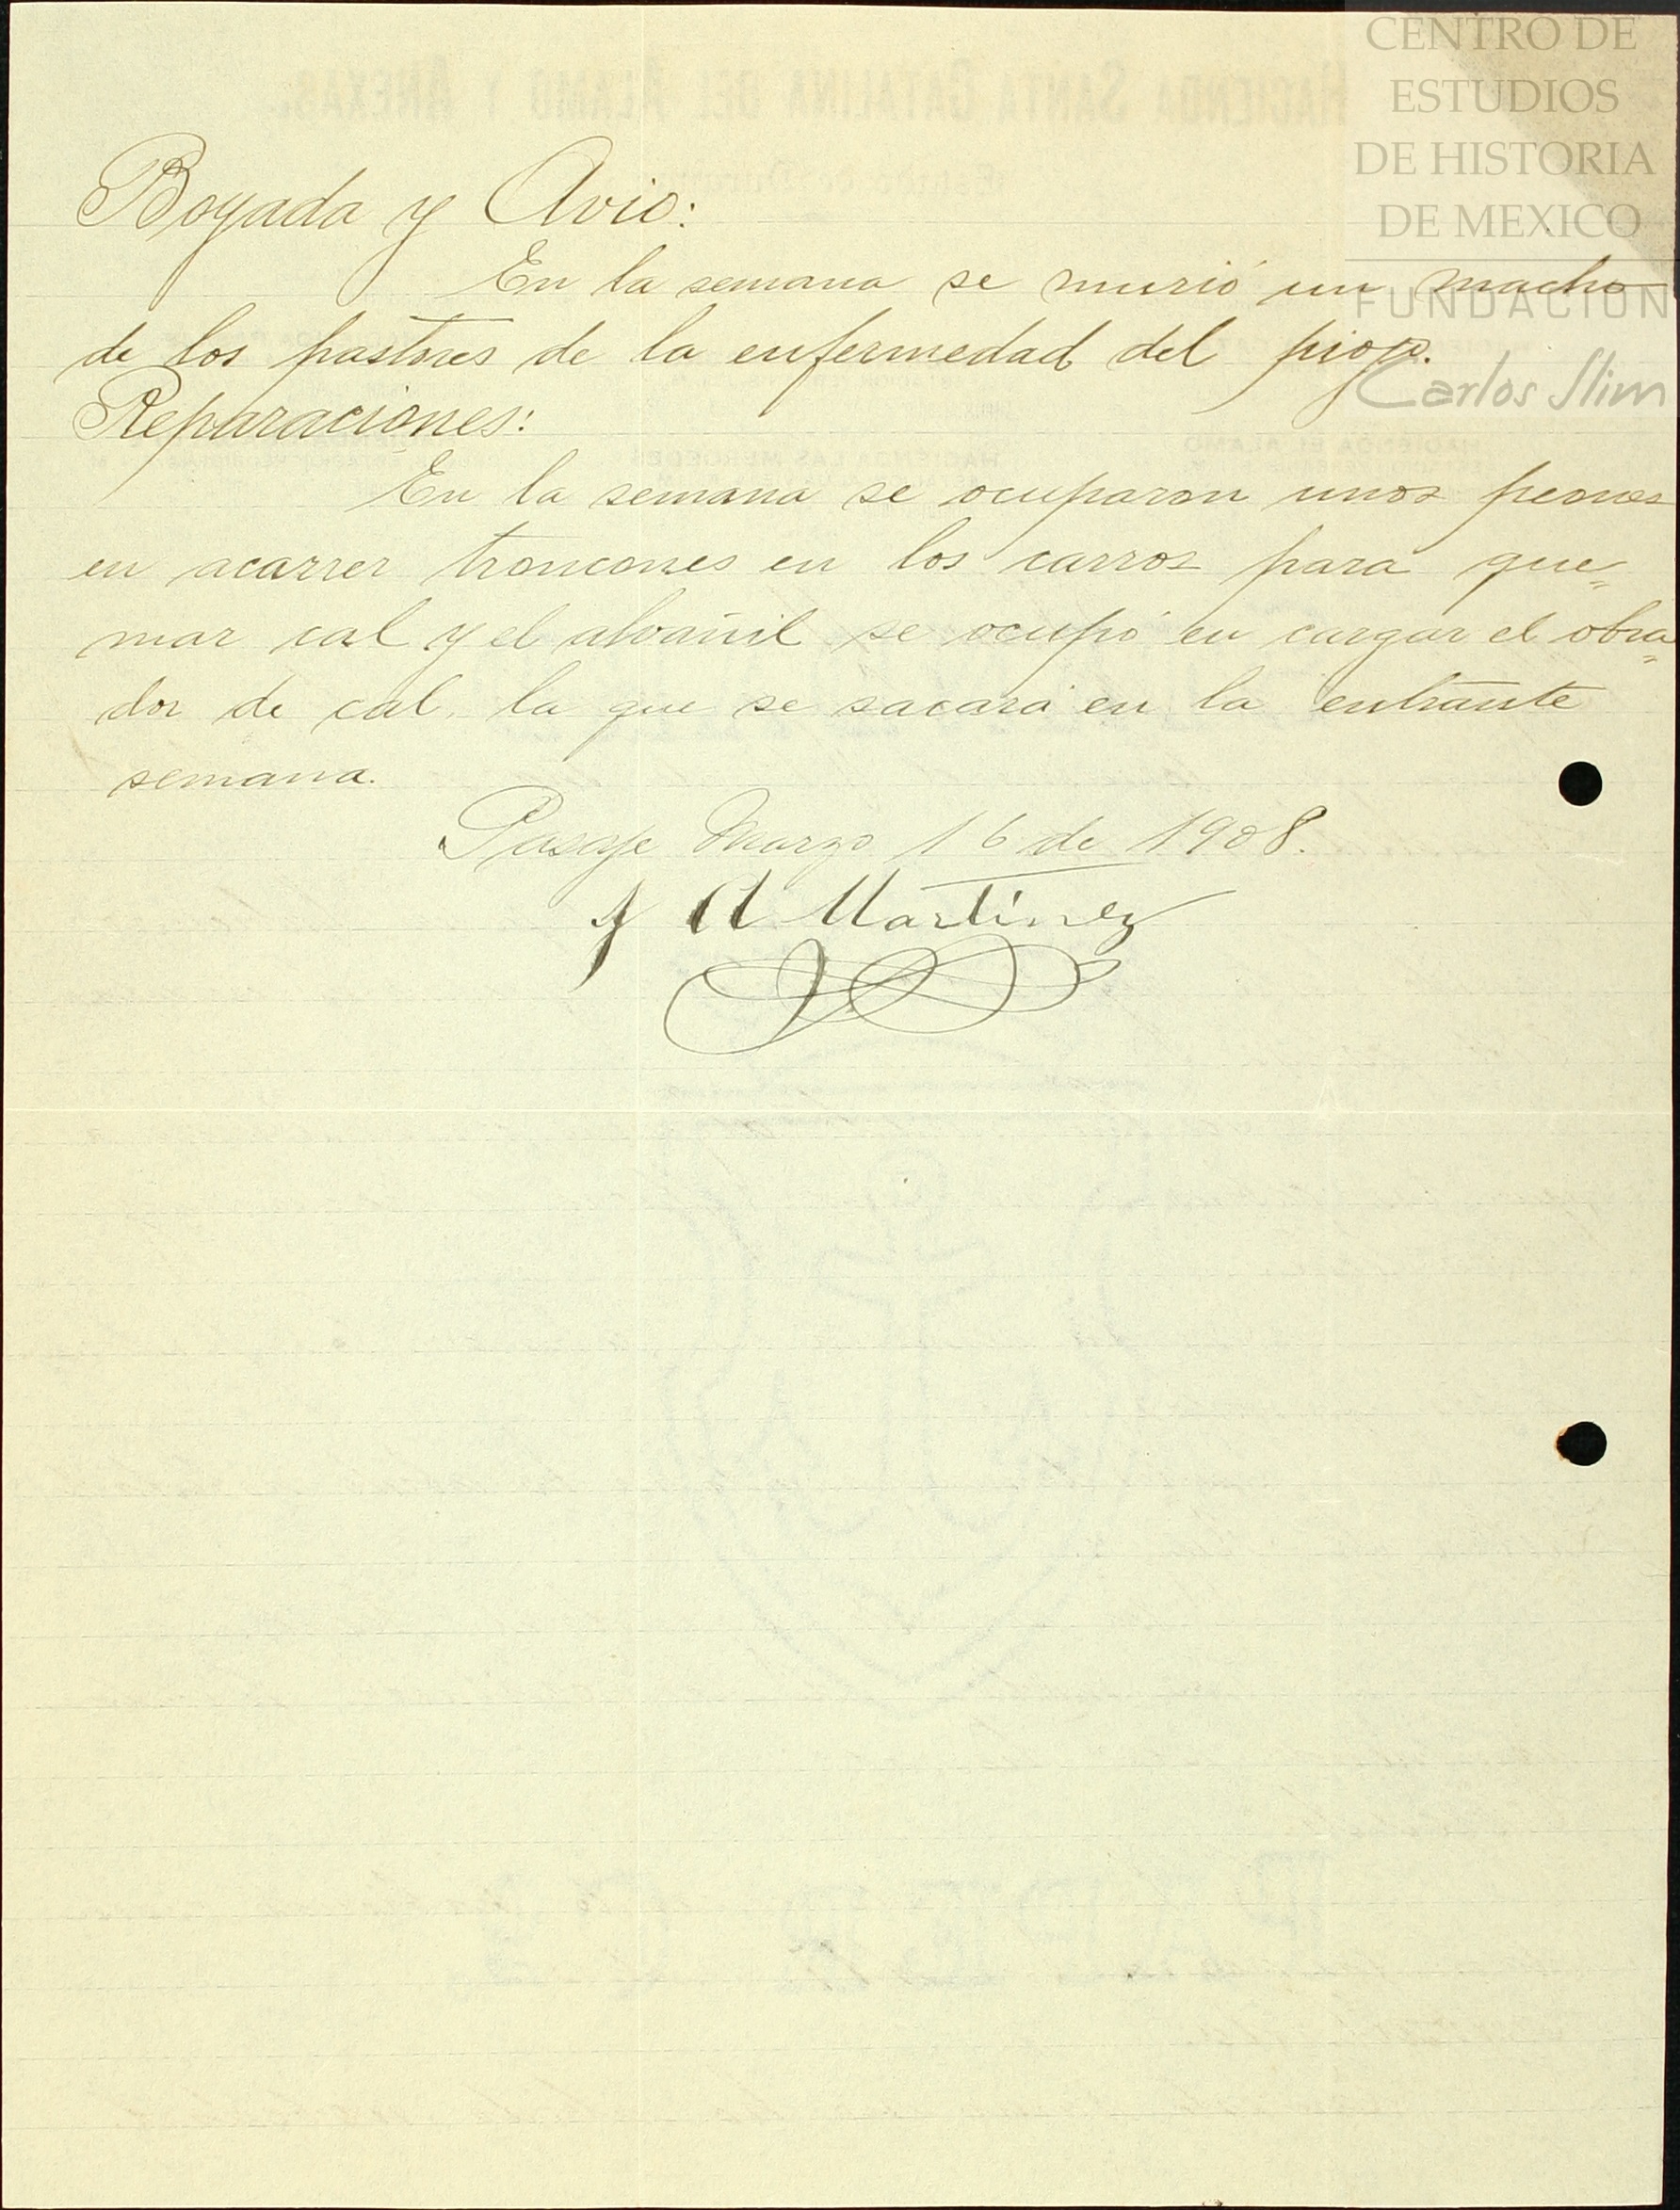 CENTRO DE
ESTUDIOS
DE HISTORIA
DE MEXICO
FUNDACION
Carlos Slim
HACIENDA SANTA CATALINA DEL ALAMO Y ANEXAS.
Boyada y Avio:
En la semana se murió un macho
de los pastores de la enfermedad del piojo.
Reparaciones:
En la semana se ocuparon unos peones
en acarrer troncones en los carros para que=
mar cal y el alvañil se ocupó en cargar el obra=
dor de cal, la que se sacará en la entrante
semana.
Pasaje Marzo 16 de 1908.
J A Martinez